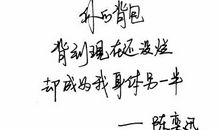 外面背包
背到现在还没烂
却成为我身体另一半
——陈奕迅